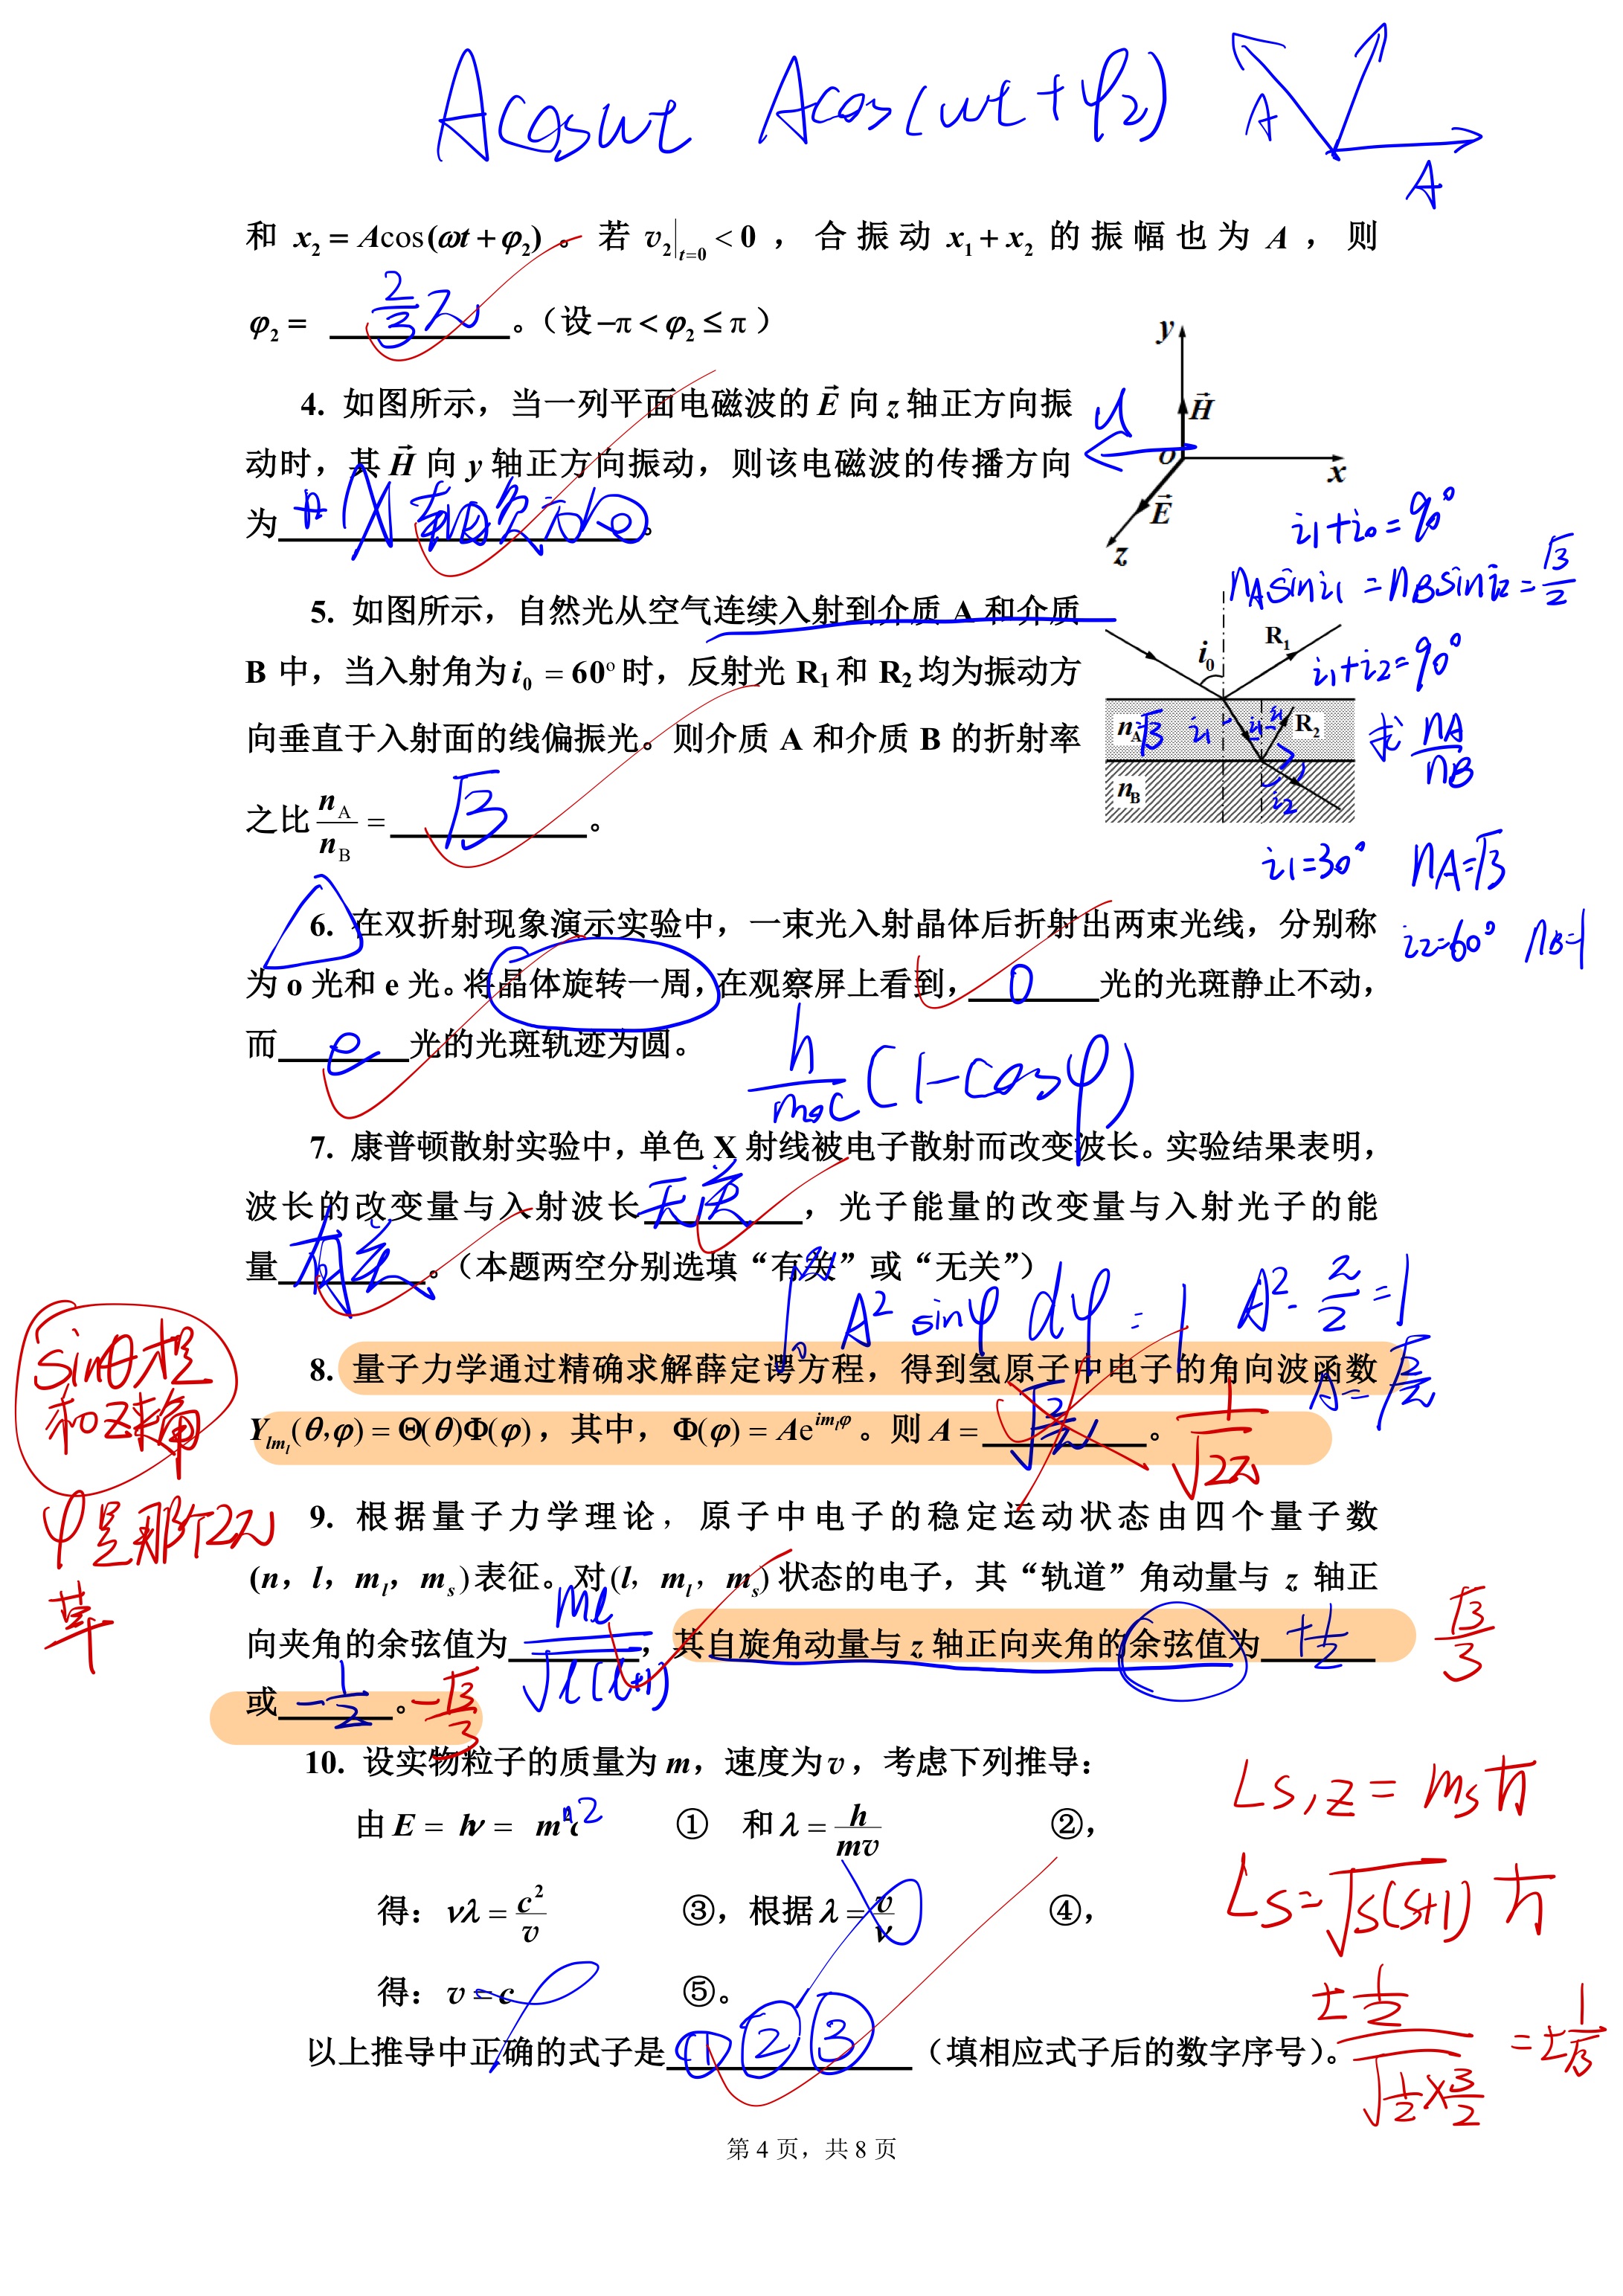 Acosωt   Acos(ωt+φ₂)   A   A
和 x₂ = Acos(ωt+φ₂)。若 v₂|ₜ₌₀ < 0，合振动 x₁+x₂ 的振幅也为 A，则
φ₂ = 2/3 π。（设 −π < φ₂ ≤ π）
4. 如图所示，当一列平面电磁波的 E⃗ 向 z 轴正方向振
动时，其 H⃗ 向 y 轴正方向振动，则该电磁波的传播方向
为 X轴负方向。
y
H⃗
u
o
x
E⃗
z
i₁+i₀=90°
nA sin i₁ = nB sin i₂ = √3/2
i₁+i₂=90°
求 nA/nB
i₁=30°   nA=√3
i₂=60°   nB=1
5. 如图所示，自然光从空气连续入射到介质 A 和介质
B 中，当入射角为 i₀ = 60° 时，反射光 R₁ 和 R₂ 均为振动方
向垂直于入射面的线偏振光。则介质 A 和介质 B 的折射率
之比 nA/nB = √3。
i₀
R₁
nA √3 i₁ i₁ i₁ R₂
nB i₂
6. 在双折射现象演示实验中，一束光入射晶体后折射出两束光线，分别称
为 o 光和 e 光。将晶体旋转一周，在观察屏上看到，o 光的光斑静止不动，
而 e 光的光斑轨迹为圆。
h/m₀c (1−cosφ)
7. 康普顿散射实验中，单色 X 射线被电子散射而改变波长。实验结果表明，
波长的改变量与入射波长 无关，光子能量的改变量与入射光子的能
量 有关。（本题两空分别选填“有关”或“无关”）
A² sinφ dφ = 1   A²·π/2=1
A=√2/π
8. 量子力学通过精确求解薛定谔方程，得到氢原子中电子的角向波函数
Yₗₘₗ(θ,φ) = Θ(θ)Φ(φ)，其中，Φ(φ) = Ae^{imₗφ}。则 A = √2/π。 1/√2π
sinθ是
和Z夹角
φ是那个2π
9. 根据量子力学理论，原子中电子的稳定运动状态由四个量子数
(n，l，mₗ，mₛ)表征。对(l，mₗ，mₛ)状态的电子，其“轨道”角动量与 z 轴正
向夹角的余弦值为 mₗ/√l(l+1)，其自旋角动量与 z 轴正向夹角的余弦值为 +1/2   √3/3
或 −1/2。 −√3/3
10. 设实物粒子的质量为 m，速度为 v，考虑下列推导：
由 E = hν = mc²   ①   和 λ = h/mv   ②，
得：νλ = c²/v   ③，根据 λ = v/ν   ④，
得：v = c   ⑤。
以上推导中正确的式子是 ①②③（填相应式子后的数字序号）。
Ls,z = msħ
Ls=√s(s+1) ħ
±1/2 / √1/2×3/2 = ±1/√3
第 4 页，共 8 页